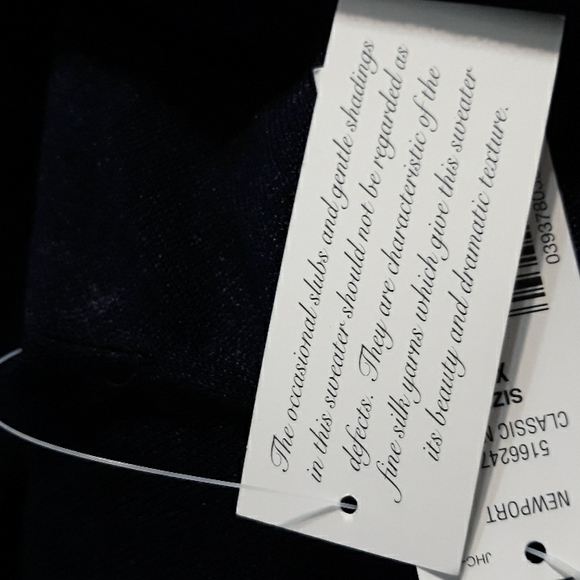 The occasional slubs and gentle shadings
in this sweater should not be regarded as
defects. They are characteristic of the
fine silk yarns which give this sweater
its beauty and dramatic texture.
JHC
NEWPORT
5166247
CLASSIC
SIZ